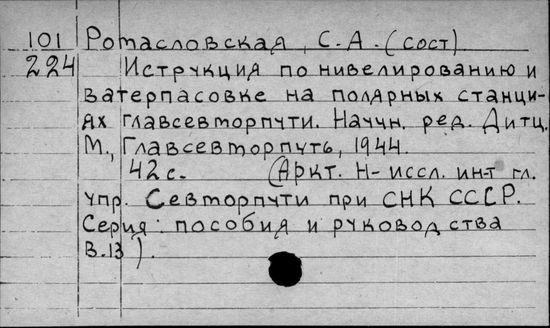 101 Ромасловская, С.А. (сост)
224 Иструкция по нивелированию и
ватерпасовке на полярных станци-
ях главсевторпути. Научн. ред. Дитц.
М., Главсевторпуть, 1944.
42 с. (Аркт. Н-иссл. ин-т гл.
упр. Севторпути при СНК СССР.
Серия: пособия и руководства
В.13).